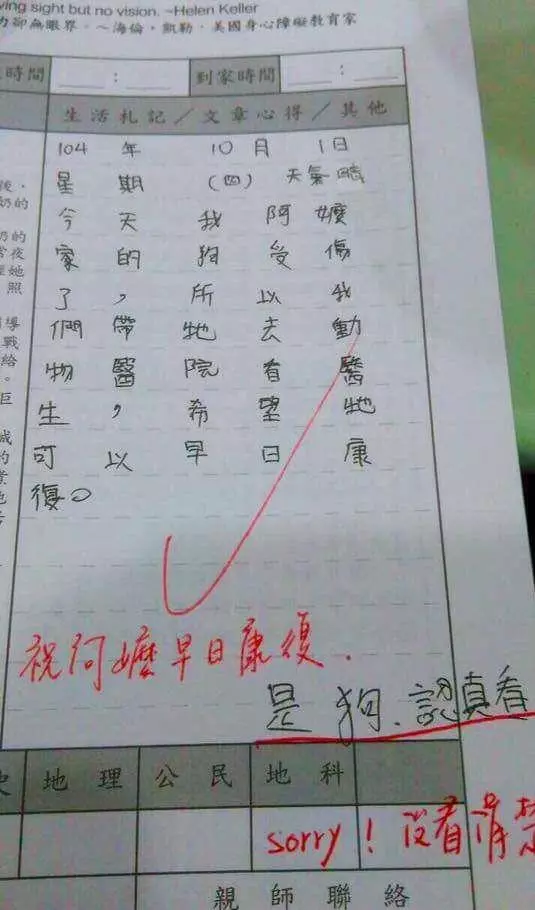 ving sight but no vision. ~Helen Keller
力卻無眼界。～海倫．凱勒．美國身心障礙教育家
時間 : 到家時間 :
生活札記／文章心得／其他
104 年 10 月 1日
星期 (四) 天氣 晴
今天我阿嬤
家的狗受傷
了，所以我
們帶牠去動
物醫院看醫
生，希望牠
可以早日康
復。
後，
奶的
奶的
常夜
她
照
導
戰
給
。
巨
成
的
祝阿嬤早日康復.
是狗.認真看
地理 公民 地科
sorry！沒看清楚
親師聯絡